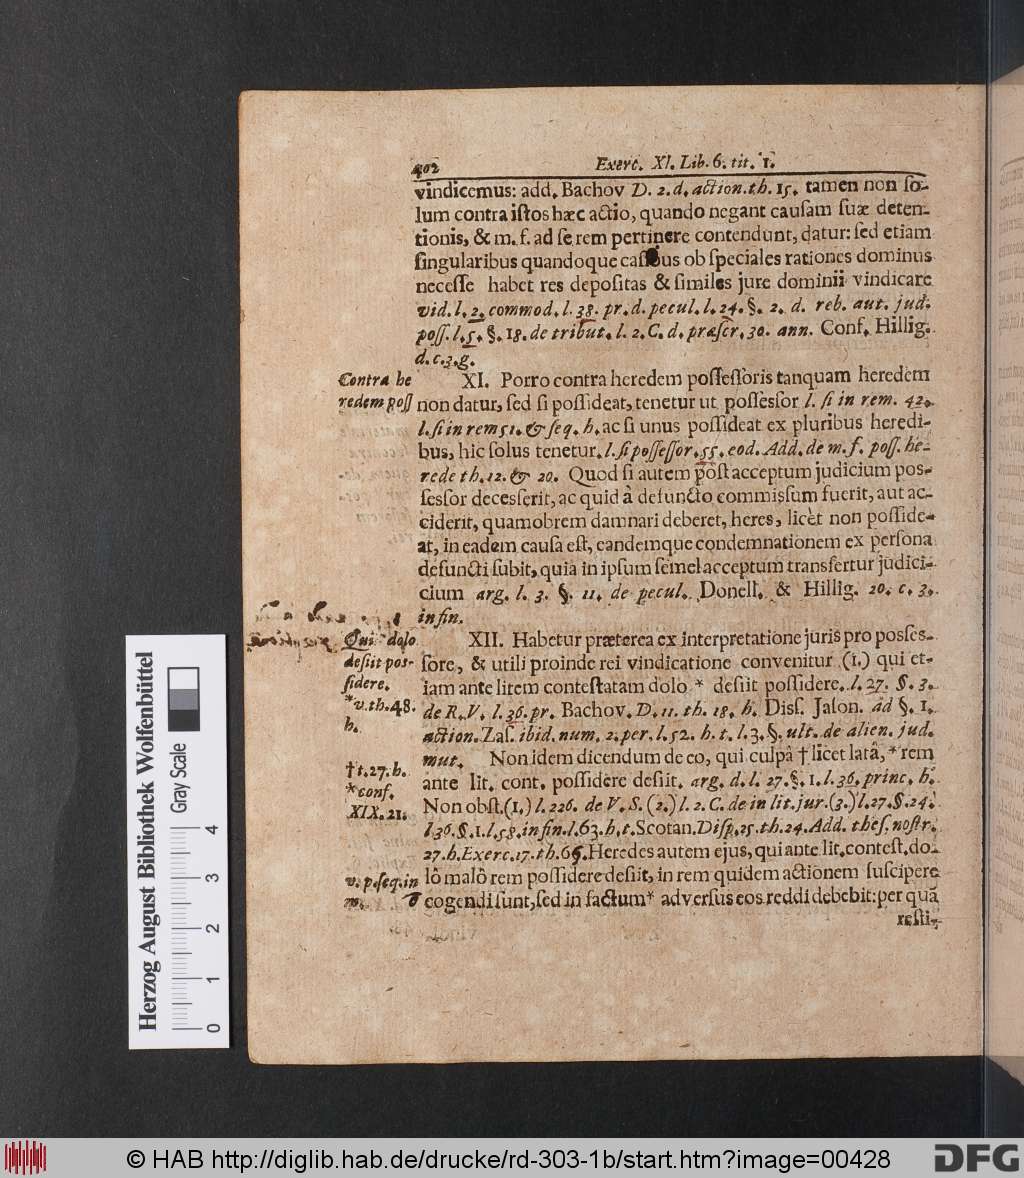 402 Exerc. XI. Lib. 6. tit. 1.
vindicemus: add. Bachov D. 2. d. action. th. 15. tamen non ſo-
lum contra iſtos hæc actio, quando negant cauſam ſuæ deten-
tionis, & m. f. ad ſe rem pertinere contendunt, datur: ſed etiam
ſingularibus quandoque caſibus ob ſpeciales rationes dominus
neceſſe habet res depoſitas & ſimiles jure dominii vindicare
vid. l. 2. commod. l. 38. pr. d. pecul. l. 24. §. 2. d. reb. aut. jud.
poſſ. l. 5. §. 18. de tribut. l. 2. C. d. præſcr. 30. ann. Conf. Hillig.
d. c. 3. g.
Contra he
redem poſſ
XI. Porro contra heredem poſſeſſoris tanquam heredem
non datur, ſed ſi poſſideat, tenetur ut poſſeſſor l. ſi in rem. 42.
l. ſi in rem 51. & ſeq. h. ac ſi unus poſſideat ex pluribus heredi-
bus, hic ſolus tenetur. l. ſi poſſeſſor. 55. eod. Add. de m. f. poſſ. he-
rede th. 12. & 20. Quod ſi autem poſt acceptum judicium poſ-
ſeſſor deceſſerit, ac quid â defuncto commiſſum fuerit, aut ac-
ciderit, quamobrem damnari deberet, heres, licèt non poſſide-
at, in eadem cauſa eſt, eandemque condemnationem ex perſona
defuncti ſubit, quia in ipſum ſemel acceptum transfertur judici-
cium arg. l. 3. §. 11. de pecul. Donell. & Hillig. 20. c. 3.
infin.
Qui dolo
deſiit poſ-
ſidere.
*v. th. 48.
h.
XII. Habetur præterea ex interpretatione juris pro poſſeſ-
ſore, & utili proinde rei vindicatione convenitur (1.) qui et-
iam ante litem conteſtatam dolo * deſiit poſſidere. l. 27. §. 3.
de R. V. l. 36. pr. Bachov. D. 11. th. 18. h. Diſſ. Jaſon. ad §. 1.
action. Zaſ. ibid. num. 2. per. l. 52. h. t. l. 3. §. ult. de alien. jud.
mut. Non idem dicendum de eo, qui culpâ † licet latâ, * rem
† t. 27. h.
* conf.
XIX. 21.
ante lit. cont. poſſidere deſiit. arg. d. l. 27. §. 1. l. 36. princ. h.
Non obſt. (1.) l. 226. de V. S. (2.) l. 2. C. de in lit. jur. (3.) l. 27. §. 24.
l. 36. §. 1. l. 58. infin. l. 63. h. t. Scotan. Diſp. 25. th. 24. Add. theſ. noſtr.
27. h. Exerc. 17. th. 66. Heredes autem ejus, qui ante lit. conteſt. do-
lô malô rem poſſidere deſiit, in rem quidem actionem ſuſcipere
v. p. ſeq. in
cogendi ſunt, ſed in factum * adverſus eos reddi debebit: per quā
reſti-
Herzog August Bibliothek Wolfenbüttel
Gray Scale
0 1 2 3 4
© HAB http://diglib.hab.de/drucke/rd-303-1b/start.htm?image=00428
DFG